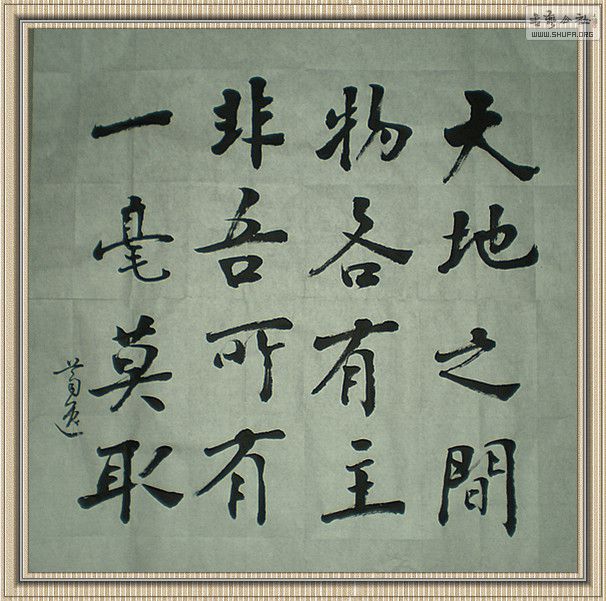 天地之間
物各有主
非吾所有
一毫莫取
WWW.SHUFA.ORG